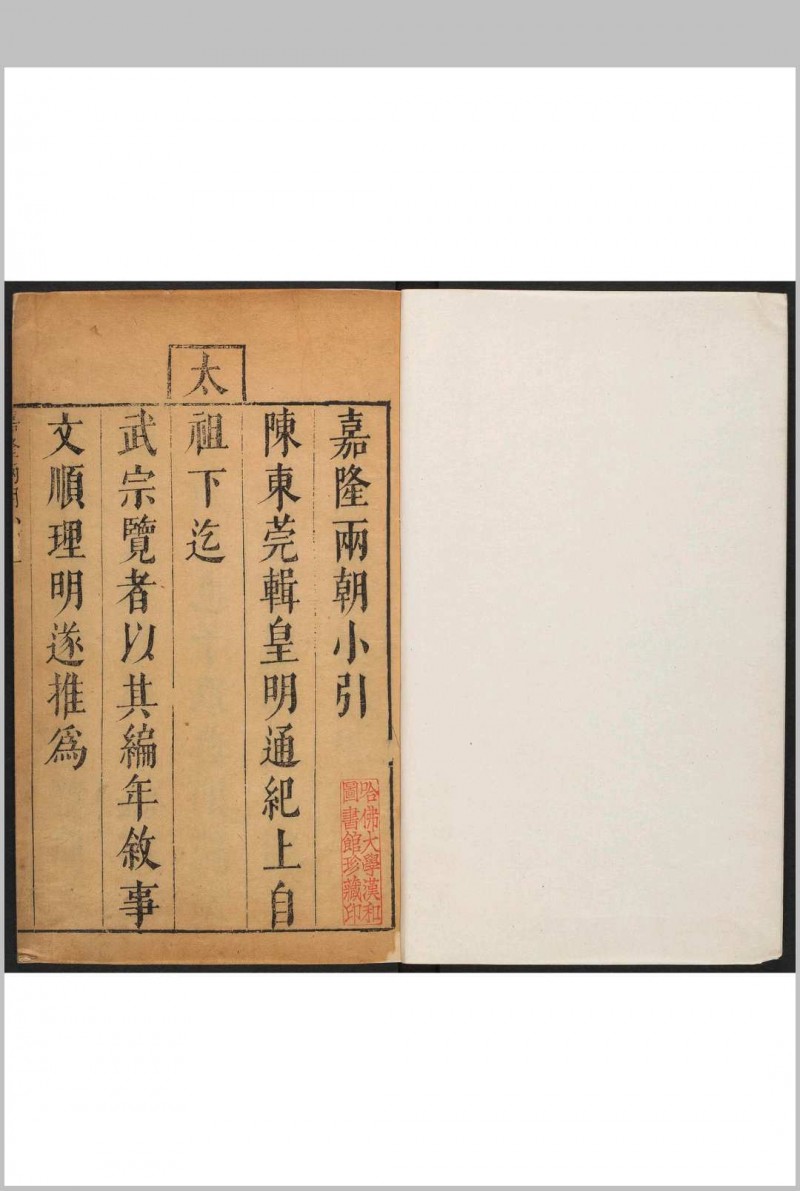 嘉隆兩朝小引
陳東莞輯皇明通紀上自
太
祖下迄
武宗覽者以其編年敘事
文順理明遂推為
哈佛大學漢和
圖書館珍藏印